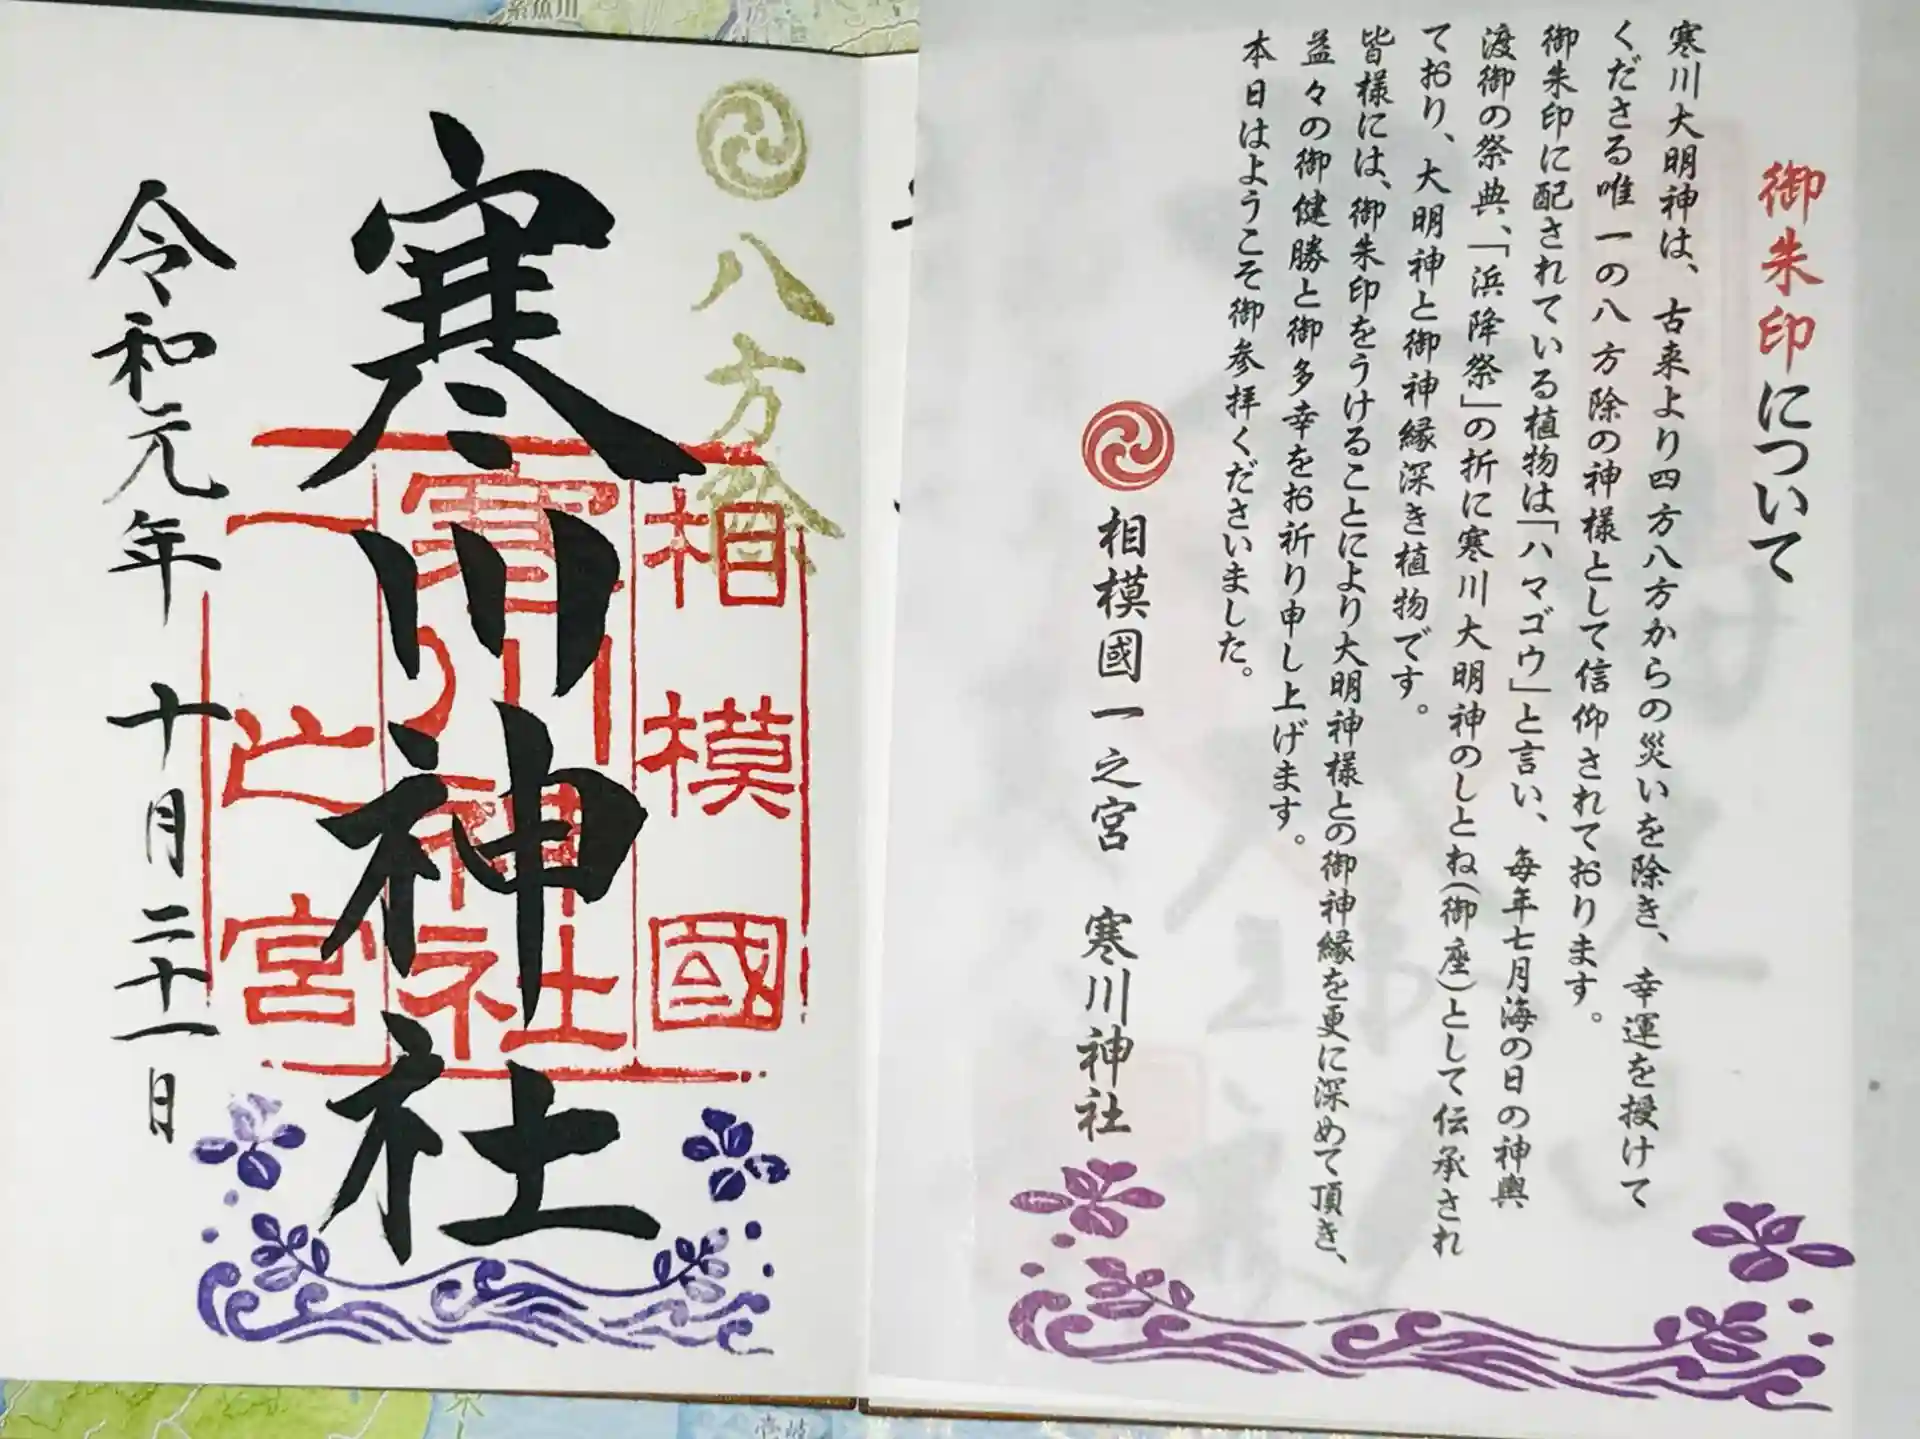 御朱印について
寒川大明神は、古来より四方八方からの災いを除き、幸運を授けて
くださる唯一の八方除の神様として信仰されております。
御朱印に配されている植物は「ハマゴウ」と言い、毎年七月海の日の神輿
渡御の祭典、「浜降祭」の折に寒川大明神のしとね(御座)として伝承され
ており、大明神と御神縁深き植物です。
皆様には、御朱印をうけることにより大明神様との御神縁を更に深めて頂き、
益々の御健勝と御多幸をお祈り申し上げます。
本日はようこそ御参拝くださいました。
相模國一之宮 寒川神社
八方除
寒川神社
相模國
寒川神社
一之宮
令和元年 十月二十一日
糸魚川
壱岐